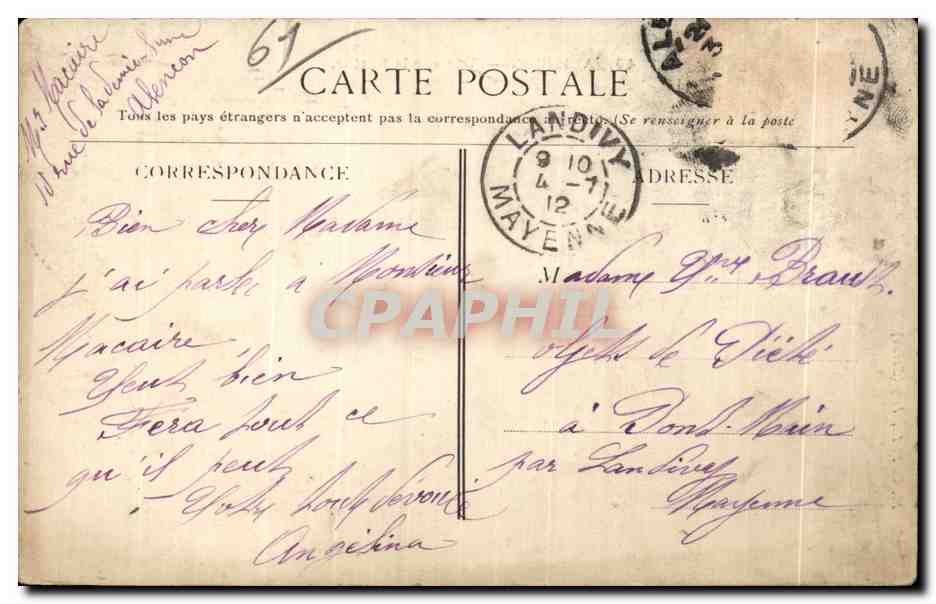 Mr Macaire
rue de la demie-lune
Alençon
61
CARTE POSTALE
Tous les pays étrangers n'acceptent pas la correspondance au recto. (Se renseigner à la poste
CORRESPONDANCE
ADRESSE
LANDIVY
9 10
4 - 11
12
MAYENNE
AL
YNE
Bien cher Madame
j'ai parlé à Monsieur
Macaire
Veut bien
Fera tout ce
qu'il peut
Votre toute dévouée
Angélina
Madame Vve Brault
objets de Piété
à Pont-Main
par Landivy
Mayenne
CPAPHIL